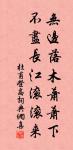 無邊落木蕭蕭下
不盡長江滾滾来
杜甫登高詞典網書